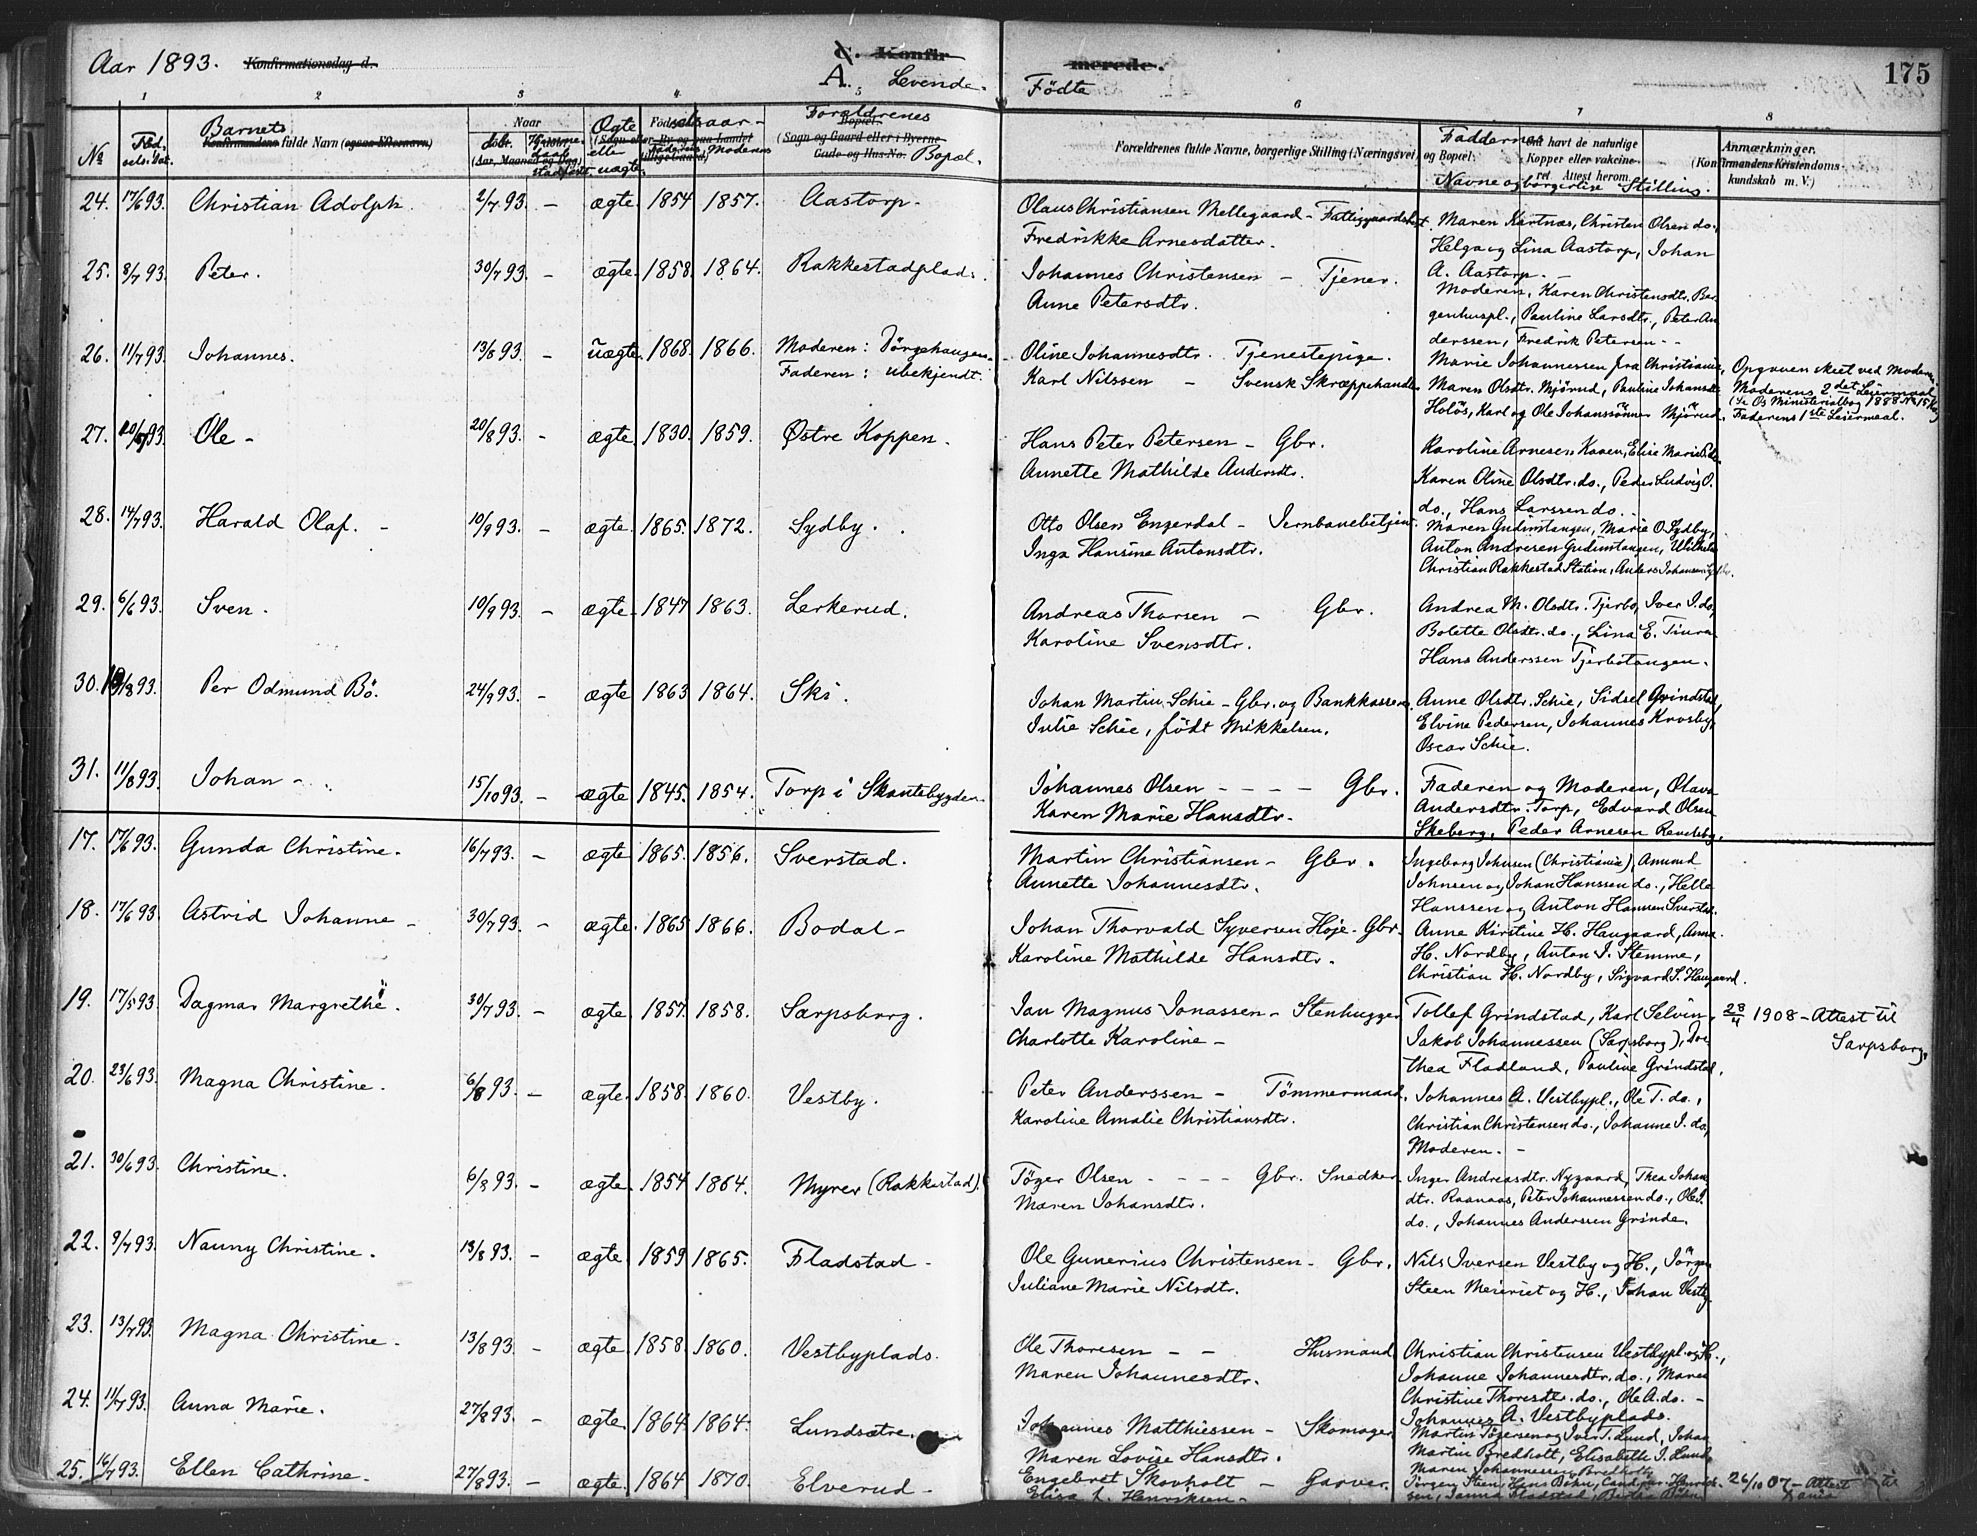 Aar 1893. Konfirmationsdag d. C. Konfirmerede. 175
A. Levende Fødte
1 2 3 4 5 6 7 8
No. Fødselsdat. Barnets fulde Navn (ogsaa Efternavn) Naar døbt Ægte eller uægte. Fødselsaar Faderens, Moderens Forældrenes Bopæl. Forældrenes fulde Navne, borgerlige Stilling (Næringsvei) og Bopæl. Faddernes Navne og borgerlige Stilling. Anmærkninger.
24. 17/6 93. Christian Adolph. 2/7 93. - ægte 1854 1857. Aastorp. Olaus Christiansen Mellegaard - Fattiggaardsbest. Maren Kartnæs, Christen Olsen do.,
Fredrikke Arnesdatter. Helga og Lina Aastorp, Johan
A. Aastorp. -
25. 8/7 93. Peter. 30/7 93. - ægte. 1858. 1864. Rakkestadplads. Johannes Christensen - Tjener. Moderen, Karen Christensdtr. Ber
Anne Petersdtr. genhuspl., Pauline Larsdtr., Peter An
derssen, Fredrik Petersen - -
26. 11/7 93. Johannes. 13/8 93. - uægte. 1868. 1866. Moderen: Dørgehaugen. Oline Johannesdtr. Tjenestepige. Marie Johannessen fra Christiania, Opgaven skeet ved Moderen.
Faderen: ubekjendt. Karl Nilssen - Svensk Skræppehandler Maren Olsdtr. Mjørud, Pauline Johansdtr. Moderens 2det Leiermaal
Holøs, Karl og Ole Johanssønner Mjørud. Faderens 1ste Leiermaal.
27. 20/5 93. Ole - 20/8 93. - ægte. 1830. 1859. Østre Koppen. Hans Peter Petersen - Gbr. Karoline Arnesen Kaaen, Elise Marie P. do.
Annette Mathilde Andersdtr. Karen Oline Olsdtr. do., Peder Ludvig P.
do., Hans Larssen do.
28. 14/7 93. Harald Olaf. - 10/9 93. - ægte. 1865. 1872. Sydby. Otto Olsen Engerdal - Jernbanebetjent. Maren Gudimstangen, Marie O. Sydby,
Inga Hansine Antonsdtr. Anton Andresen Gudimstangen, Wilhelm
Christian Rakkestad Station, Anders Johansen Sydby.
29. 6/6 93. Sven. 10/9 93. - ægte. 1847 1863. Lerkerud. Andreas Thorsen - Gbr. Andrea M. Olsdtr. Tjerbo, Iver I. do,
Karoline Svensdtr. Bolette Olsdtr. do., Lina E.
Hans Anderssen Tjerbotangen.
30. 19/8 93. Per Odmund Bø. 24/9 93. - ægte 1863 1864. Ski. Johan Martin Schie - Gbr. og Bankkasserer. Anne Olsdtr. Schie, Sidsel Grindstad,
Julie Schie, født Mikkelsen. Elvine Pedersen, Johannes Krosby,
Oscar Schie.
31. 11/8 93. Johan - 15/10 93. - ægte 1845. 1854. Torp i Skantebygden. Johannes Olsen - - - - Gbr. Faderen og Moderen, Olava
Karen Marie Hansdtr. Andersdtr. Torp, Edvard Olsen
Skeberg, Peder Arnesen
17. 17/6 93. Gunda Christine. 16/7 93. - ægte 1865. 1856. Sverstad. Martin Christiansen - Gbr. Ingeborg Johnsen (Christiania), Amund
Annette Johannesdtr. Johnsen og Johan Hanssen do., Helle
Hanssen og Anton Hansen Sverstad.
18. 17/6 93. Astrid Johanne - 30/7 93. - ægte. 1865 1866. Bodal - Johan Thorvald Syversen Høje - Gbr. Anne Kirstine H. Haugaard, Anna
Karoline Mathilde Hansdtr. H. Nordby, Anton I. Stemme,
Christian H. Nordby, Sigvard S. Haugaard.
19. 17/5 93. Dagmar Margrethe. 30/7 93. - ægte. 1857. 1858. Sarpsborg. Jan Magnus Jonassen - Stenhugger Tollef Grindstad, Karl Selvin, 28/4 1908 - Attest til
Charlotte Karoline - Jakob Johannessen (Sarpsborg), Do Sarpsborg.
thea Fladlund, Pauline Grindstad,
20. 23/6 93. Magna Christine. 6/8 93. - ægte. 1858. 1860. Vestby. Peter Anderssen - Tömmermand. Johannes A. Vestbypl., Ole T. do.,
Karoline Amalie Christiansdtr. Christian Christensen do., Johanne I. do,
Moderen. -
21. 30/6 93. Christine. 6/8 93. - ægte. 1854 1864. Myrer (Rakkestad). Töger Olsen - - - - Gbr. Snedker Inger Andreasdtr. Nygaard, Thea Johan
Maren Johansdtr. dtr. Raanaas, Peter Johannessen do., Ole I.
do., Johannes Anderssen Grinde.
22. 9/7 93. Nanny Christine. 13/8 93. - ægte 1859 1865. Fladstad - Ole Gunerius Christensen - Gbr. Nils Iversen Vestby og H., Jörgen
Juliane Marie Nilsdtr. Steen Meieriet og H., Johan Vestby.
23. 13/7 93. Magna Christine. 13/8 93. - ægte. 1858. 1860. Vestbyplads. Ole Thoresen - - Husmand Christian Christensen Vestbypl. og H.,
Maren Johannesdtr. Johanne Johannesdtr. do., Maren
Christine Thoresdtr. do., Ole A. do. -
Johannes A. Vestbyplads.
24. 11/7 93. Anna Marie. 27/8 93. - ægte. 1864 1864. Lundsætre. Johannes Matthiessen - Skomager Martin Tögersen og Iver T. Lund, Johan
Maren Lovise Hansdtr. Martin Bredholt, Elisabeth I. Lund,
Maren Johannessen Bredholt.
25. 16/7 93. Ellen Cathrine. 27/8 93. - ægte. 1864 1870. Elverud - Engebret Skovholt - Garver. Jörgen Steen, Hans Böhn, Cand. jur. Henrik 26/10 07 - Attest til
Elisa f. Henriksen - sen, Janna Fladstad,